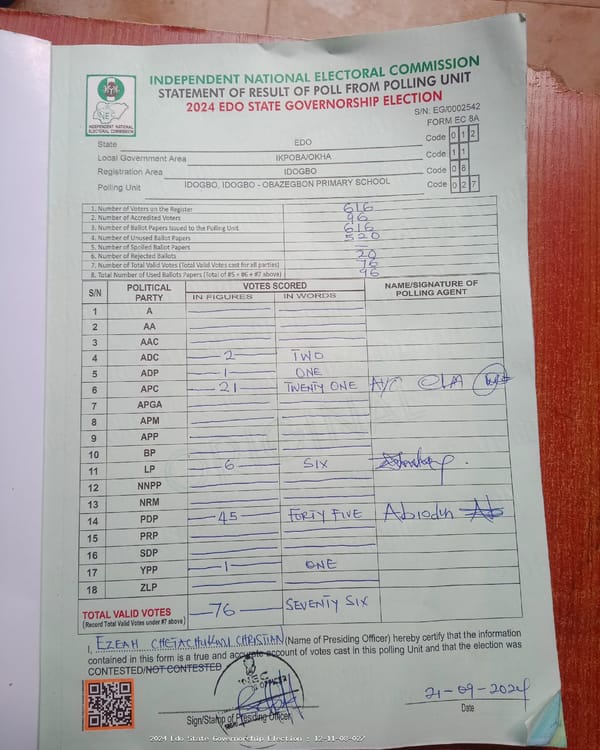 INDEPENDENT NATIONAL ELECTORAL COMMISSION
STATEMENT OF RESULT OF POLL FROM POLLING UNIT
2024 EDO STATE GOVERNORSHIP ELECTION
S/N: EG/0002542
FORM EC 8A
INEC
INDEPENDENT NATIONAL ELECTORAL COMMISSION
State EDO Code 0 1 2
Local Government Area IKPOBA/OKHA Code 1 1
Registration Area IDOGBO Code 0 8
Polling Unit IDOGBO, IDOGBO - OBAZEGBON PRIMARY SCHOOL Code 0 2 7
1. Number of Voters on the Register 616
2. Number of Accredited Voters 96
3. Number of Ballot Papers Issued to the Polling Unit 616
4. Number of Unused Ballot Papers 520
5. Number of Spoiled Ballot Papers —
6. Number of Rejected Ballots 20
7. Number of Total Valid Votes (Total Valid Votes cast for all parties) 76
8. Total Number of Used Ballots Papers (Total of #5 + #6 + #7 above) 96
S/N POLITICAL PARTY VOTES SCORED NAME/SIGNATURE OF POLLING AGENT
IN FIGURES IN WORDS
1 A
2 AA
3 AAC
4 ADC 2 TWO
5 ADP 1 ONE
6 APC 21 TWENTY ONE A/C OLA
7 APGA
8 APM
9 APP
10 BP
11 LP 6 SIX
12 NNPP
13 NRM
14 PDP 45 FORTY FIVE Abiodun
15 PRP
16 SDP
17 YPP 1 ONE
18 ZLP
TOTAL VALID VOTES 76 SEVENTY SIX
(Record Total Valid Votes under #7 above)
I, EZEAH CHETACHUKWU CHRISTIAN (Name of Presiding Officer) hereby certify that the information
contained in this form is a true and accurate account of votes cast in this polling Unit and that the election was
CONTESTED/NOT CONTESTED
INEC
21-09-2024
Sign/Stamp of Presiding Officer
Date
2024 Edo State Governorship Election : 12-11-08-027